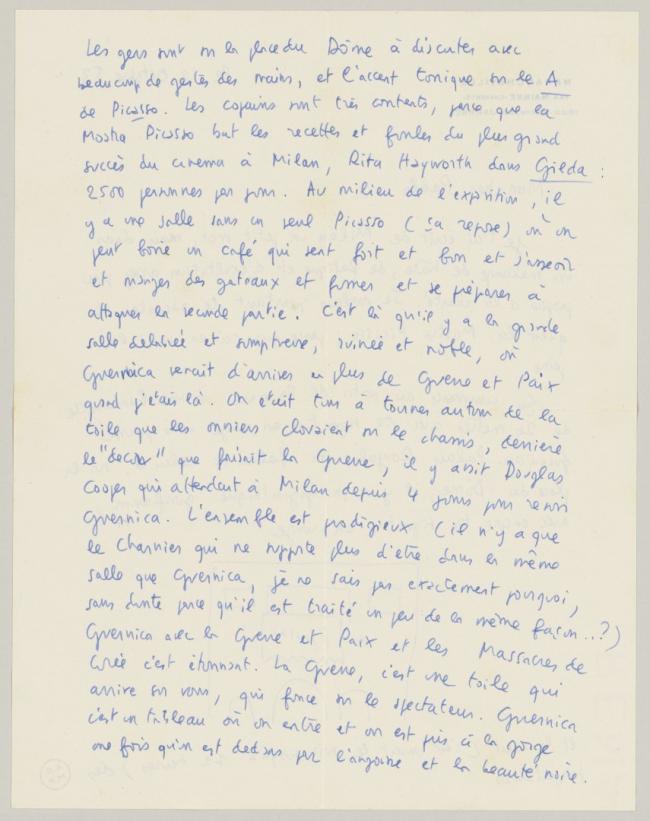 Les gens sont sur la place du Dôme à discuter avec
beaucoup de gestes des mains, et l'accent tonique sur le A
de Picasso. Les copains sont très contents, parce que la
Mostra Picasso bat les recettes et foules du plus grand
succès du cinema à Milan, Rita Hayworth dans Gilda :
2500 personnes par jour. Au milieu de l'exposition, il
y a une salle sans un seul Picasso (ça repose) où on
peut boire un café qui sent fort et bon et s'asseoir
et manger des gateaux et fumer et se préparer à
attaquer la seconde partie. C'est là qu'il y a la grande
salle delabrée et somptueuse, ruinée et noble, où
Guernica venait d'arriver en plus de Guerre et Paix
quand j'étais là. On était tous à tourner autour de la
toile que les ouvriers clouaient sur le chassis, derrière
le "decor" que faisait la Guerre, il y avait Douglas
Cooper qui attendait à Milan depuis 4 jours pour revoir
Guernica. L'ensemble est prodigieux (il n'y a que
le Charnier qui ne supporte plus d'être dans la même
salle que Guernica, je ne sais pas exactement pourquoi,
sans doute parce qu'il est traité un peu de la même façon...?)
Guernica avec la Guerre et Paix et les Massacres de
Corée c'est étonnant. La Guerre, c'est une toile qui
arrive sur vous, qui fonce sur le spectateur. Guernica
c'est un tableau où on entre et on est pris à la gorge
une fois qu'on est dedans par l'angoisse et la beauté noire.